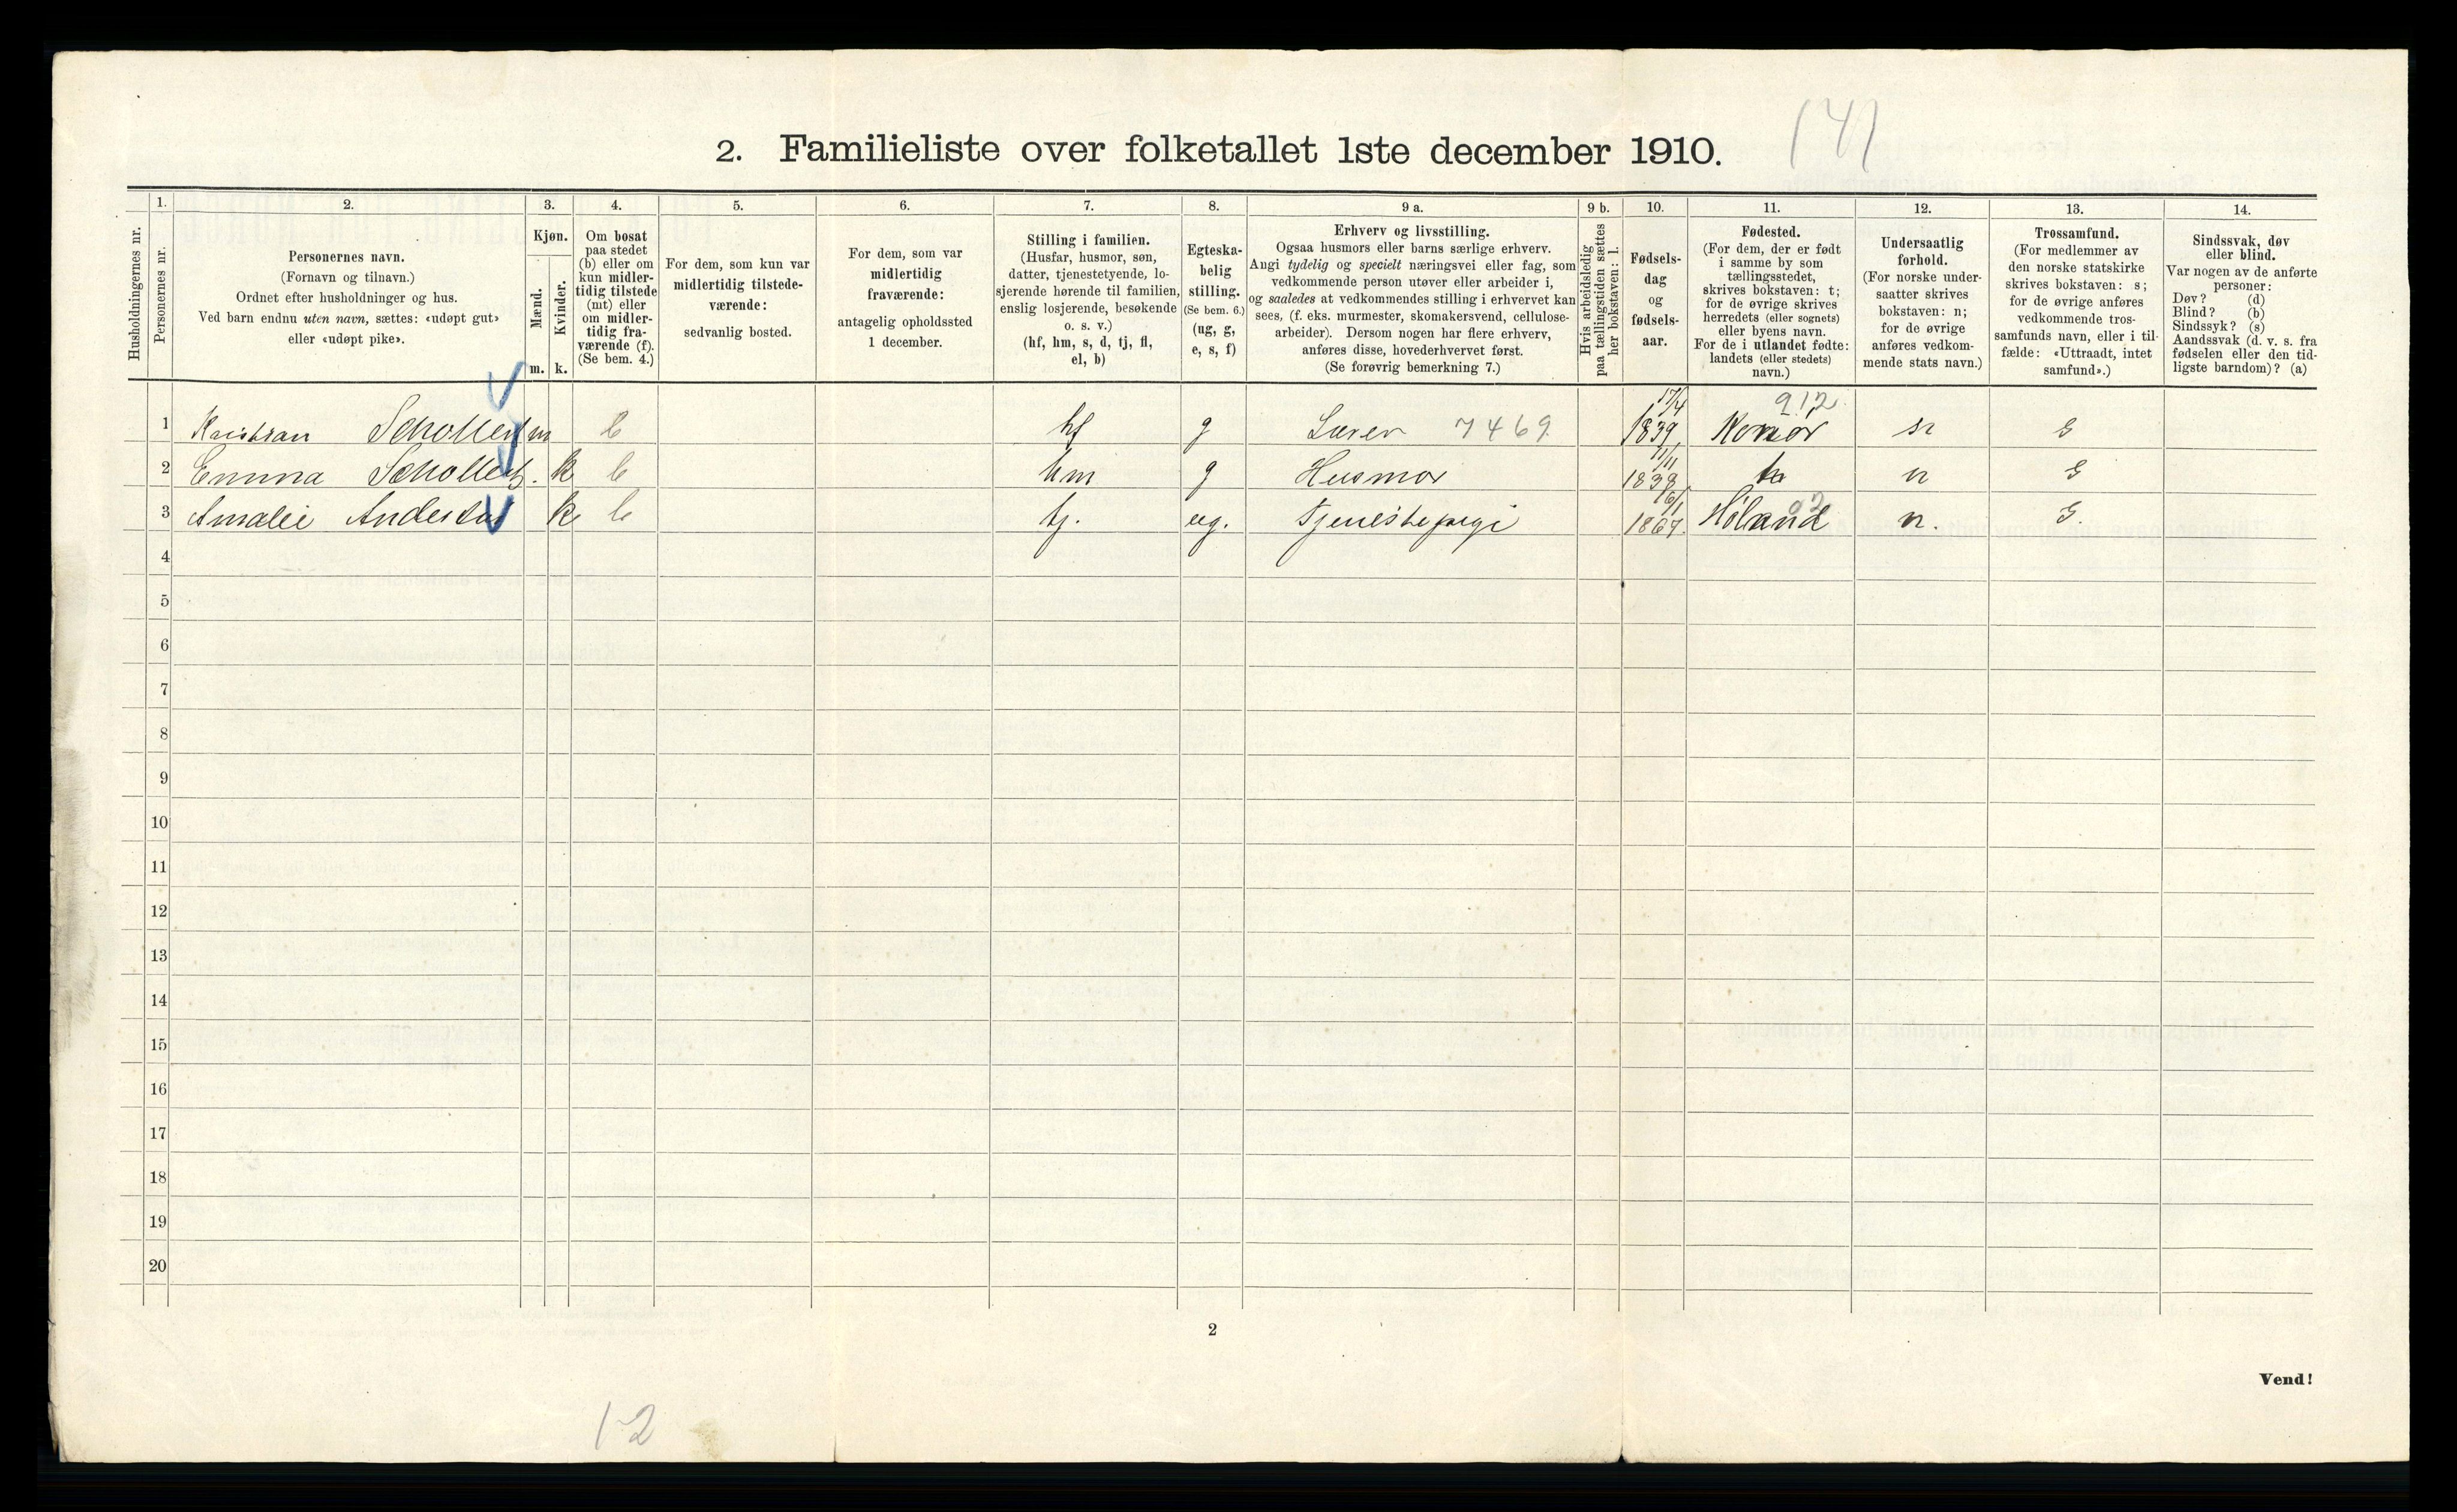 (4)
2. Familieliste over folketallet 1ste december 1910.
1. 2. 3. 4. 5. 6. 7. 8. 9 a. 9 b. 10. 11. 12. 13. 14.
Husholdningernes nr.
Personernes nr.
Personernes navn.
(Fornavn og tilnavn.)
Ordnet efter husholdninger og hus.
Ved barn endnu uten navn, sættes: «udøpt gut»
eller «udøpt pike».
Kjøn.
Mænd.
Kvinder.
m. k.
Om bosat
paa stedet
(b) eller om
kun midler-
tidig tilstede
(mt) eller
om midler-
tidig fra-
værende (f).
(Se bem. 4.)
For dem, som kun var
midlertidig tilstede-
værende:
sedvanlig bosted.
For dem, som var
midlertidig
fraværende:
antagelig opholdssted
1 december.
Stilling i familien.
(Husfar, husmor, søn,
datter, tjenestetyende, lo-
sjerende hørende til familien,
enslig losjerende, besøkende
o. s. v.)
(hf, hm, s, d, tj, fl,
el, b)
Egteska-
belig
stilling.
(Se bem. 6.)
(ug, g,
e, s, f)
Erhverv og livsstilling.
Ogsaa husmors eller barns særlige erhverv.
Angi tydelig og specielt næringsvei eller fag, som
vedkommende person utøver eller arbeider i,
og saaledes at vedkommendes stilling i erhvervet kan
sees, (f. eks. murmester, skomakersvend, cellulose-
arbeider). Dersom nogen har flere erhverv,
anføres disse, hovederhvervet først.
(Se forøvrig bemerkning 7.)
Hvis arbeidsledig
paa tællingstiden sættes
her bokstaven: l.
Fødsels-
dag
og
fødsels-
aar.
Fødested.
(For dem, der er født
i samme by som
tællingsstedet,
skrives bokstaven: t;
for de øvrige skrives
herredets (eller sognets)
eller byens navn.
For de i utlandet fødte:
landets (eller stedets)
navn.)
Undersaatlig
forhold.
(For norske under-
saatter skrives
bokstaven: n;
for de øvrige
anføres vedkom-
mende stats navn.)
Trossamfund.
(For medlemmer av
den norske statskirke
skrives bokstaven: s;
for de øvrige anføres
vedkommende tros-
samfunds navn, eller i til-
fælde: «Uttraadt, intet
samfund».)
Sindssvak, døv
eller blind.
Var nogen av de anførte
personer:
Døv? (d)
Blind? (b)
Sindssyk? (s)
Aandssvak (d. v. s. fra
fødselen eller den tid-
ligste barndom)? (a)
17/4 912
1 Kristian Schollert m b hf g 7469 1839 n s
11/11
2 Emma Schollert. k b hm g Husmor 1838 n s
6/1 02
3 Amalie Andersen k b tj. ug. Tjenestepige 1867. Høland n. s.
4
5
6
7
8
9
10
11
12
13
14
15
16
17
18
19
20
2
Vend!
1-2